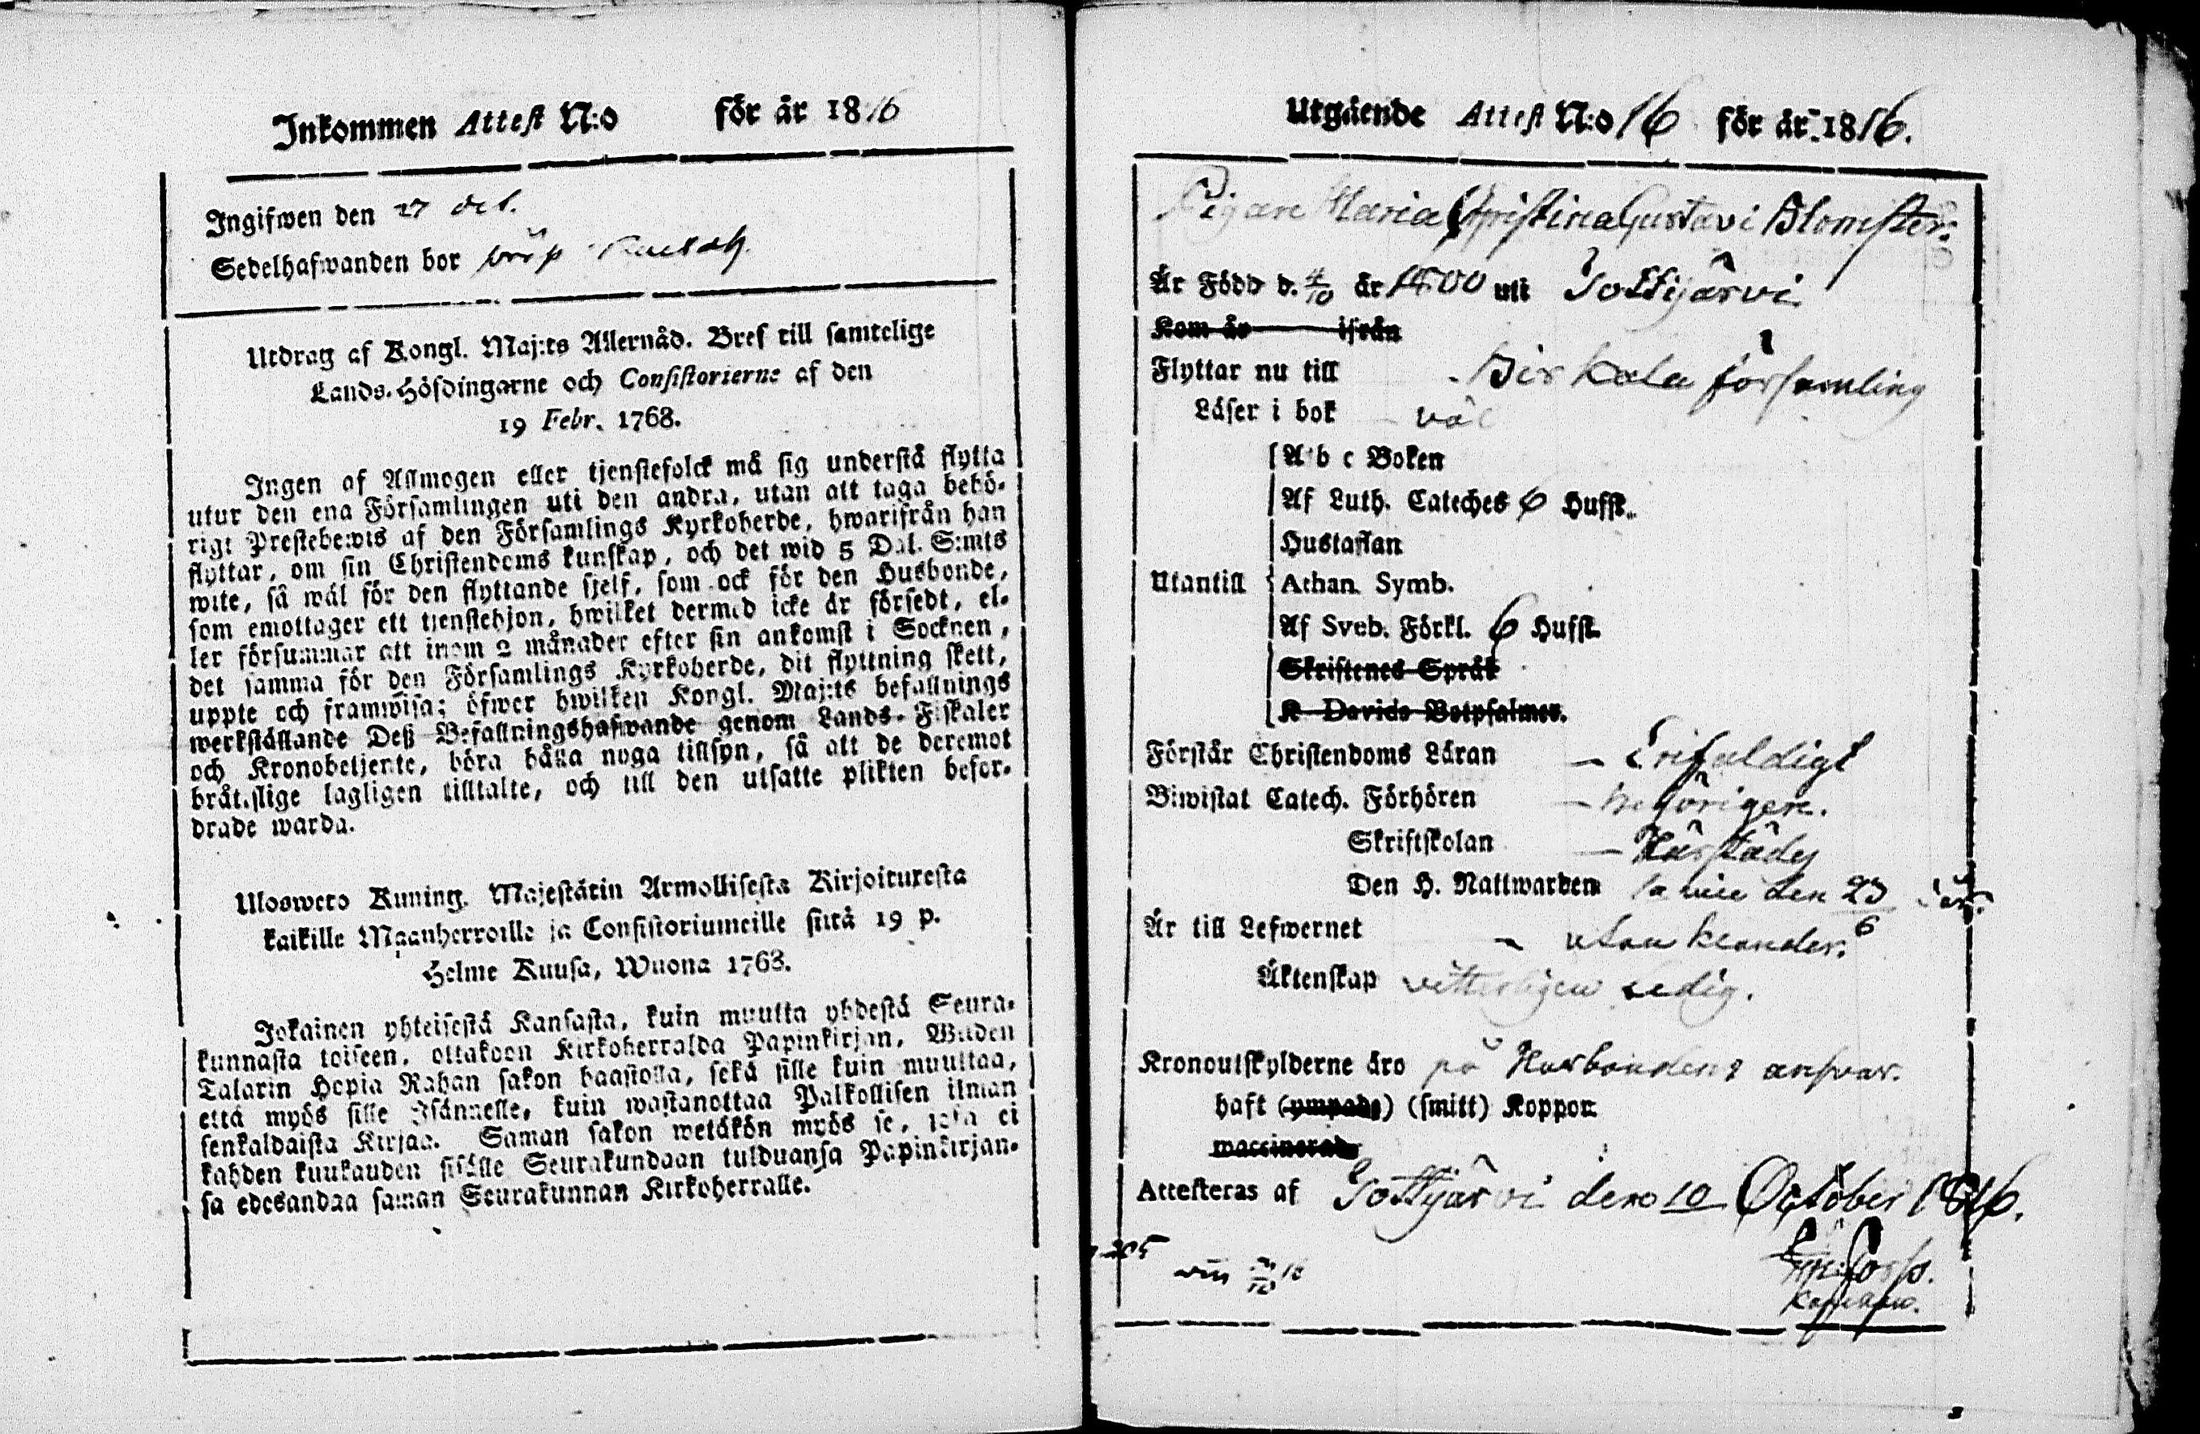 Inkommen Attest N:o för år 1816
Ingifwen den 27 Oct.
Sedelhafwanden bor
Utdrag af Kongl. Maj:ts Allernåd. Bref till samtelige
Lands-Höfdingarne och Consistorierne af den
19 Febr. 1768.
Ingen af Allmogen eller tjenstefolck må sig understå flytta
utur den ena Församlingen uti den andra, utan att taga behö-
rigt Prestebewis af den Församlings Kyrkoherde, hwarifrån han
flyttar, om sin Christendoms kunskap, och det wid 5 Dal. S:mts
wite, så wäl för den flyttande sjelf, som ock för den Husbonde,
som emottager ett tjenstehjon, hwilket dermed icke är försedt, el-
ler försummar att inom 2 månader efter sin ankomst i Socknen,
det samma för den Församlings Kyrkoherde, dit flyttning skett,
uppte och framwisa; öfwer hwilken Kongl. Maj:ts befallnings
werkställande Deß Befallningshafwande genom Lands-Fiskaler
och Kronobetjente, böra hålla noga tillsyn, så att de deremot
bråtslige lagligen tilltalte, och till den utsatte plikten befor-
drade warda.
Ulosweto Kuning. Majestätin Armollisesta Kirjoituxesta
kaikille Maanherroille ja Consistoriumeille siitä 19 p.
Helme Kuusa, Wuona 1768.
Jokainen yhteisestä Kansasta, kuin muutta yhdestä Seura-
kunnasta toiseen, ottakoon Kirkoherralda Papinkirjan, Wiiden
Talarin Hopia Rahan sakon haastolla, sekä sille kuin muuttaa,
että myös sille Isännelle, kuin wastanottaa Palkollisen ilman
senkaldaista Kirjaa. Saman sakon wetäkön myös se, joka ei
kahden kuukauden sisälle Seurakundaan tulduansa Papinkirjan-
sa edesandaa saman Seurakunnan Kirkoherralle.
Utgående Attest N:o 16 för år 1816.
Pigan Maria Christina Gustavi Blomster:
Är Född d. 4/10 år 1800 uti Tottijärvi
Kom år ifrån
Flyttar nu till Birkala församling
Läser i bok väl
A b c Boken
Af Luth. Cateches 6 Hufst.
Hustaflan
Utantill Athan. Symb.
Af Sveb. Förkl. 6 Hufst.
Skriftenes Språk
K Davids Botpsalmer.
Förstår Christendoms Läran – Enfaldigt
Biwistat Catech. Förhören – behörigen.
Skriftskolan – Härstädes
Den H. Nattwarden den 23/6
Är till Lefwernet – utan klander.
Äktenskap vitterligen ledig.
Kronoutskylderne äro på Husbondens ansvar.
haft (ympade) (smitt) Koppor
waccinerad
Attesteras af Tottijärvi den 10 October 1816.
Kapellan.